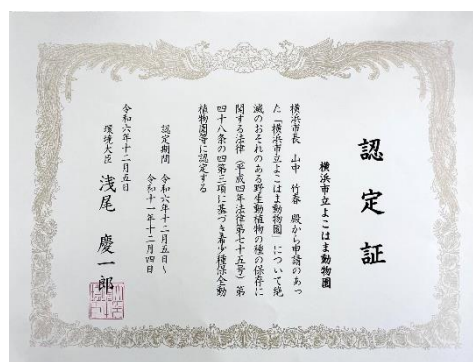 認定証
横浜市立よこはま動物園
横浜市長 山中 竹春 殿から申請のあっ
た「横浜市立よこはま動物園」について絶
滅のおそれのある野生動植物の種の保存に
関する法律(平成四年法律第七十五号)第
四十八条の四第三項に基づき希少種保全動
植物園等に認定する
認定期間 令和六年十二月五日~
令和十一年十二月四日
令和六年十二月五日
環境大臣 浅尾 慶一郎